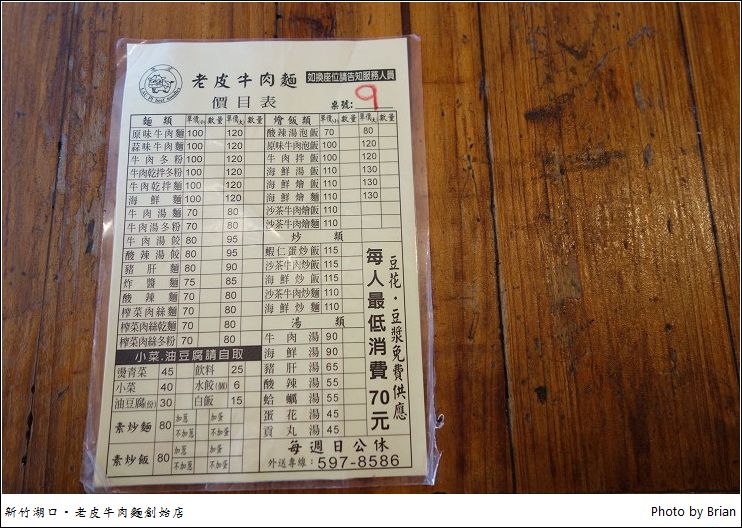 老皮牛肉麵
如換座位請告知服務人員
價目表
桌號: 9
麵類 單價小 數量 單價大 數量
原味牛肉麵 100 120
蒜味牛肉麵 100 120
牛肉冬粉 100 120
牛肉乾拌冬粉 100 120
牛肉乾拌麵 100 120
海鮮麵 100 120
牛肉湯麵 70 80
牛肉湯冬粉 70 80
牛肉湯餃 80 95
酸辣湯餃 80 95
豬肝麵 80 90
炸醬麵 75 85
酸辣麵 70 80
榨菜肉絲麵 70 80
榨菜肉絲乾麵 70 80
榨菜肉絲冬粉 70 80
小菜.油豆腐請自取
燙青菜 45 飲料 25
小菜 40 水餃(個) 6
油豆腐(份) 30 白飯 15
素炒麵 80 加蔥 加蛋
不加蔥 不加蛋
素炒飯 80 加蔥 加蛋
不加蔥 不加蛋
燴飯類 單價小 數量 單價大 數量
酸辣湯泡飯 70 80
原味牛肉泡飯 100 120
牛肉拌飯 100 120
海鮮湯飯 110 130
海鮮燴飯 110 130
海鮮燴麵 110 130
沙茶牛肉燴飯 110
沙茶牛肉燴麵 110
炒類
蝦仁蛋炒飯 115
沙茶牛肉炒飯 115
海鮮炒飯 115
沙茶牛肉炒麵 110
海鮮炒麵 110
湯類
牛肉湯 90
海鮮湯 90
豬肝湯 65
酸辣湯 55
蛤蠣湯 55
蛋花湯 45
貢丸湯 45
豆花·豆漿免費供應
每人最低消費70元
每週日公休
外送專線:597-8586
新竹湖口·老皮牛肉麵創始店
Photo by Brian